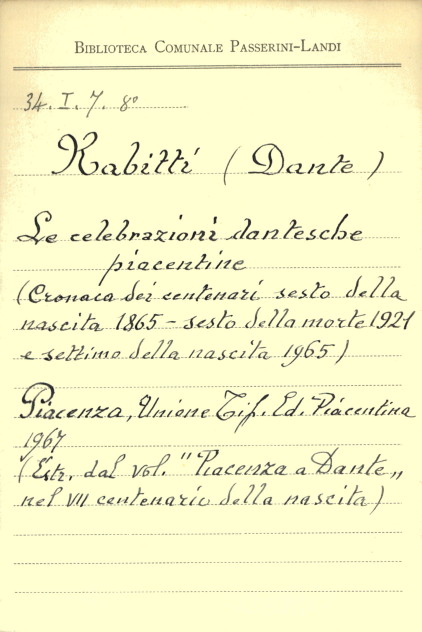 BIBLIOTECA COMUNALE PASSERINI-LANDI
34. I. 7. 8º
Rabitti (Dante)
Le celebrazioni dantesche
piacentine
(Cronaca dei centenari sesto della
nascita 1865 - sesto della morte 1921
e settimo della nascita 1965)
Piacenza, Unione Tip. Ed. Piacentina
1967
(Estr. dal vol. "Piacenza a Dante„
nel VII centenario della nascita)